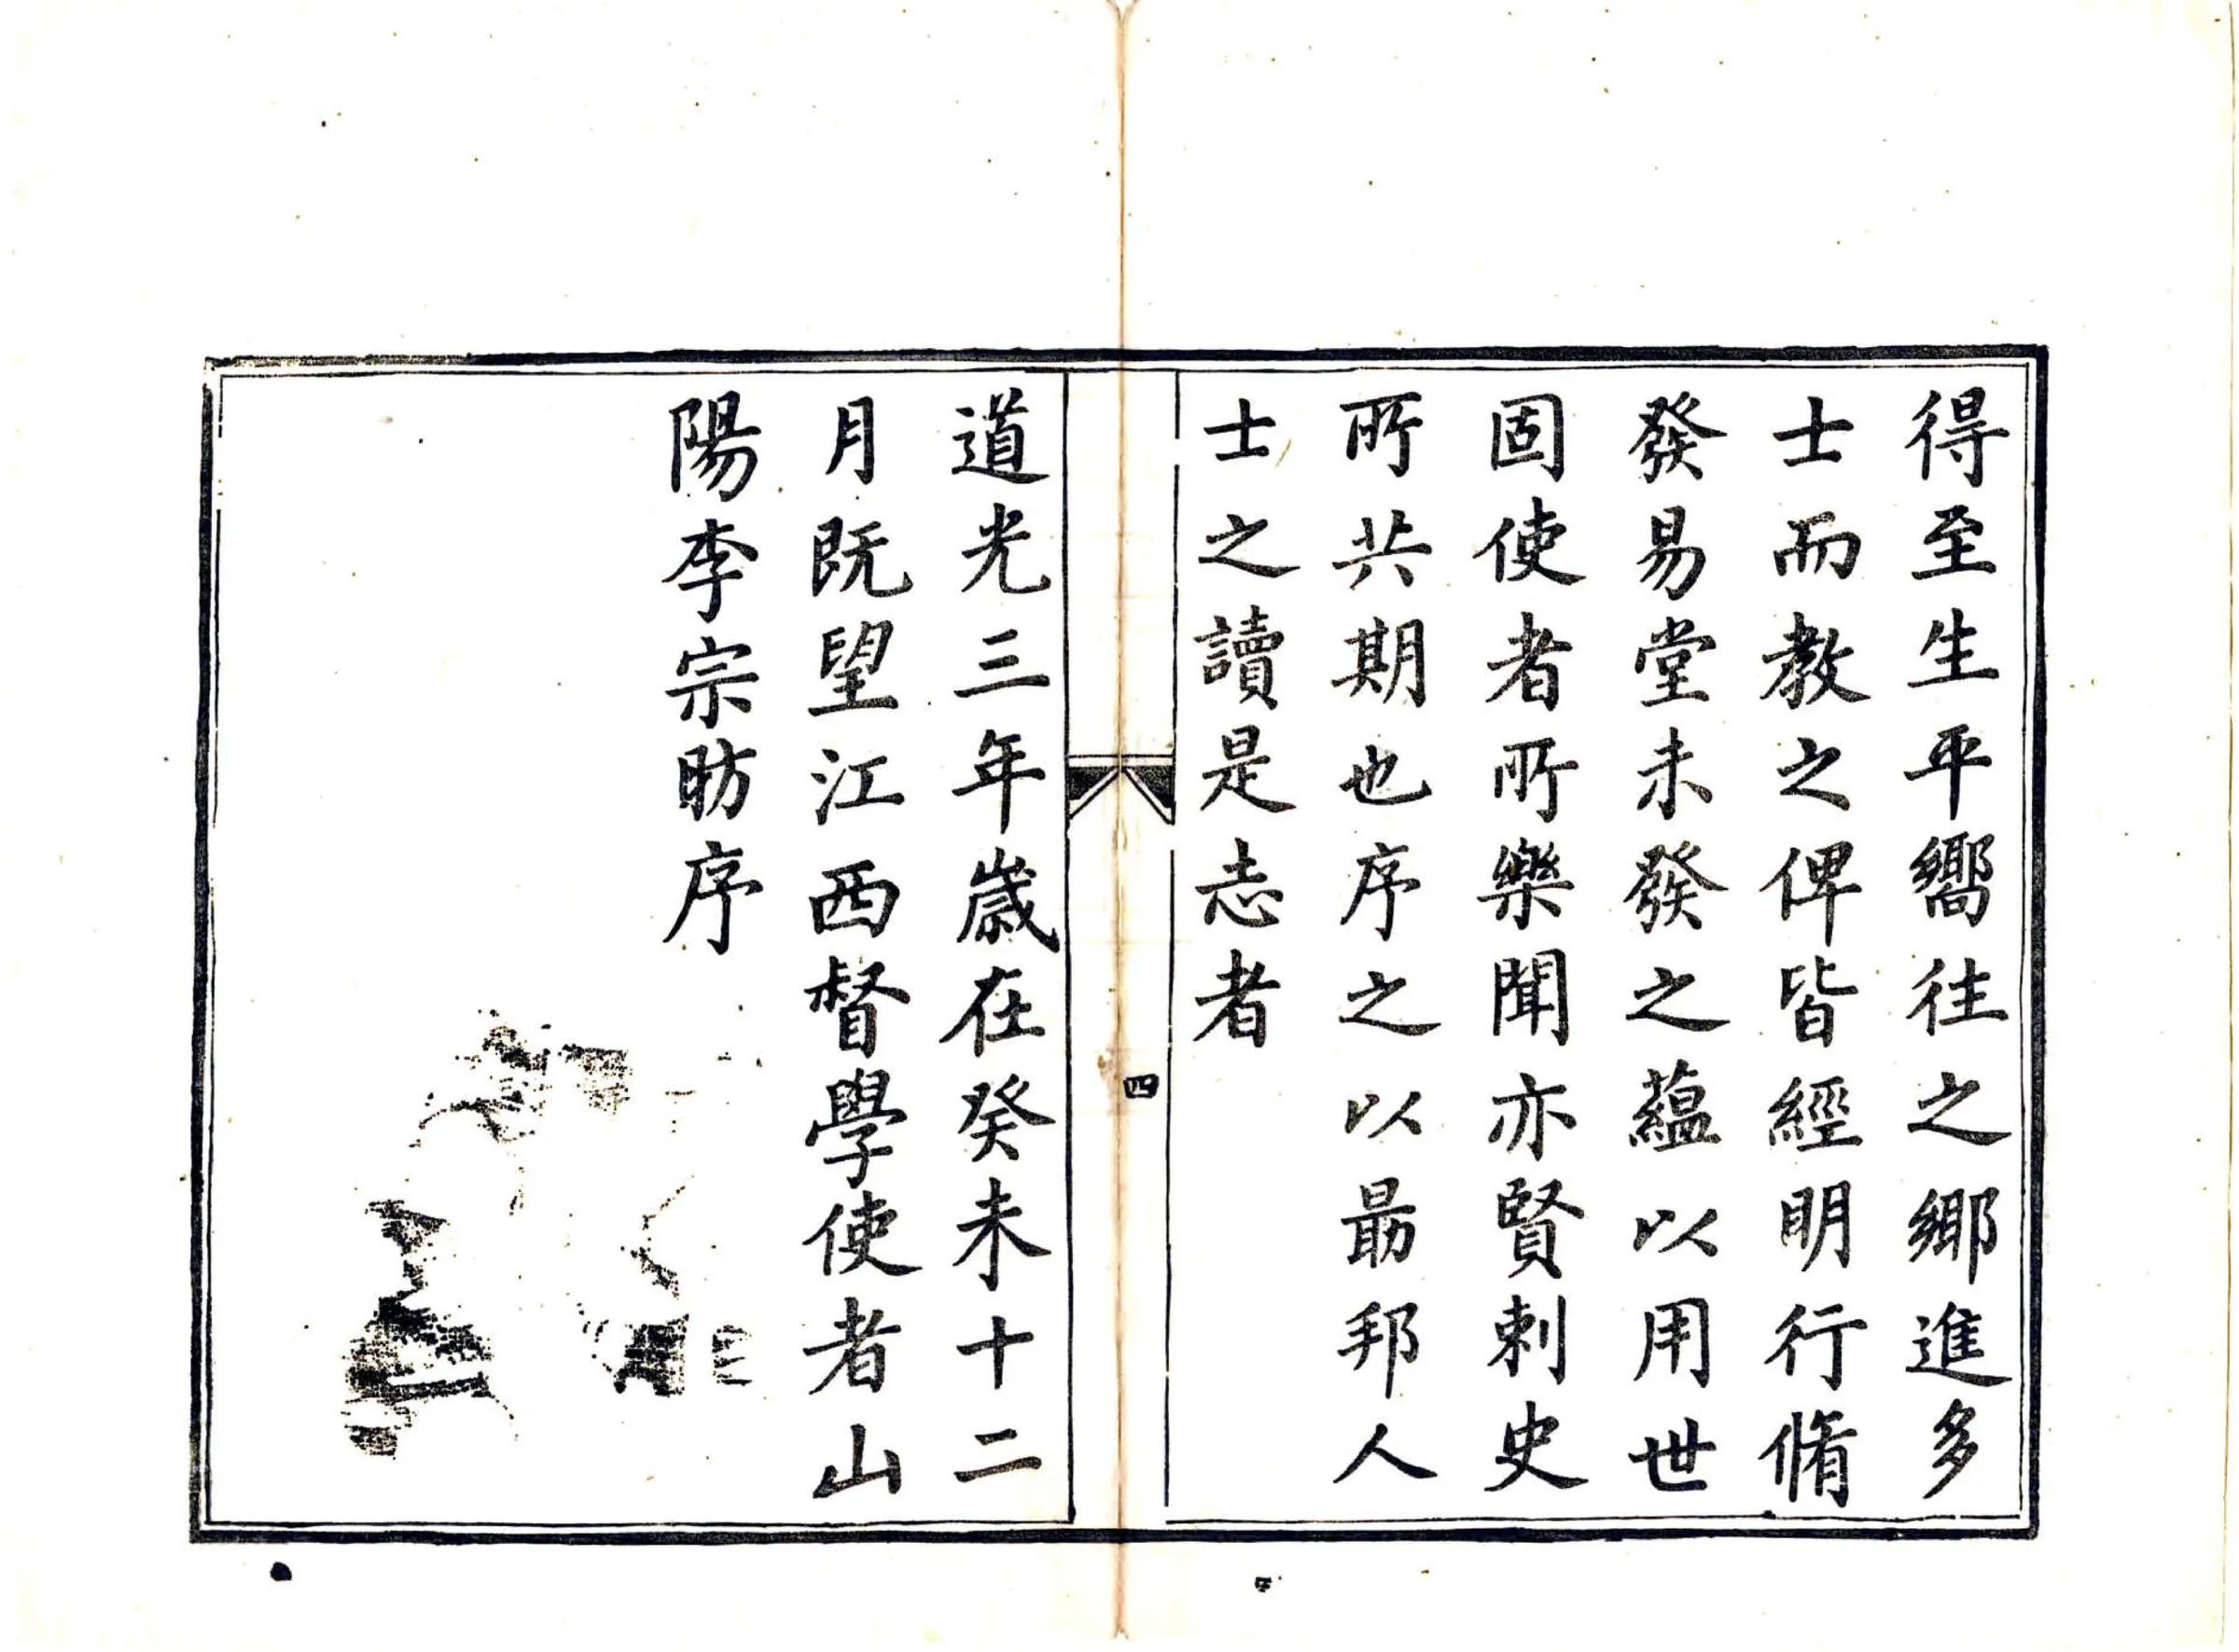 得至生平嚮往之鄉進多
士而教之俾皆經明行脩
發易堂未發之蘊以用世
固使者所樂聞亦賢刺史
所共期也序之以勗邦人
士之讀是志者
四
道光三年歲在癸未十二
月既望江西督學使者山
陽李宗昉序